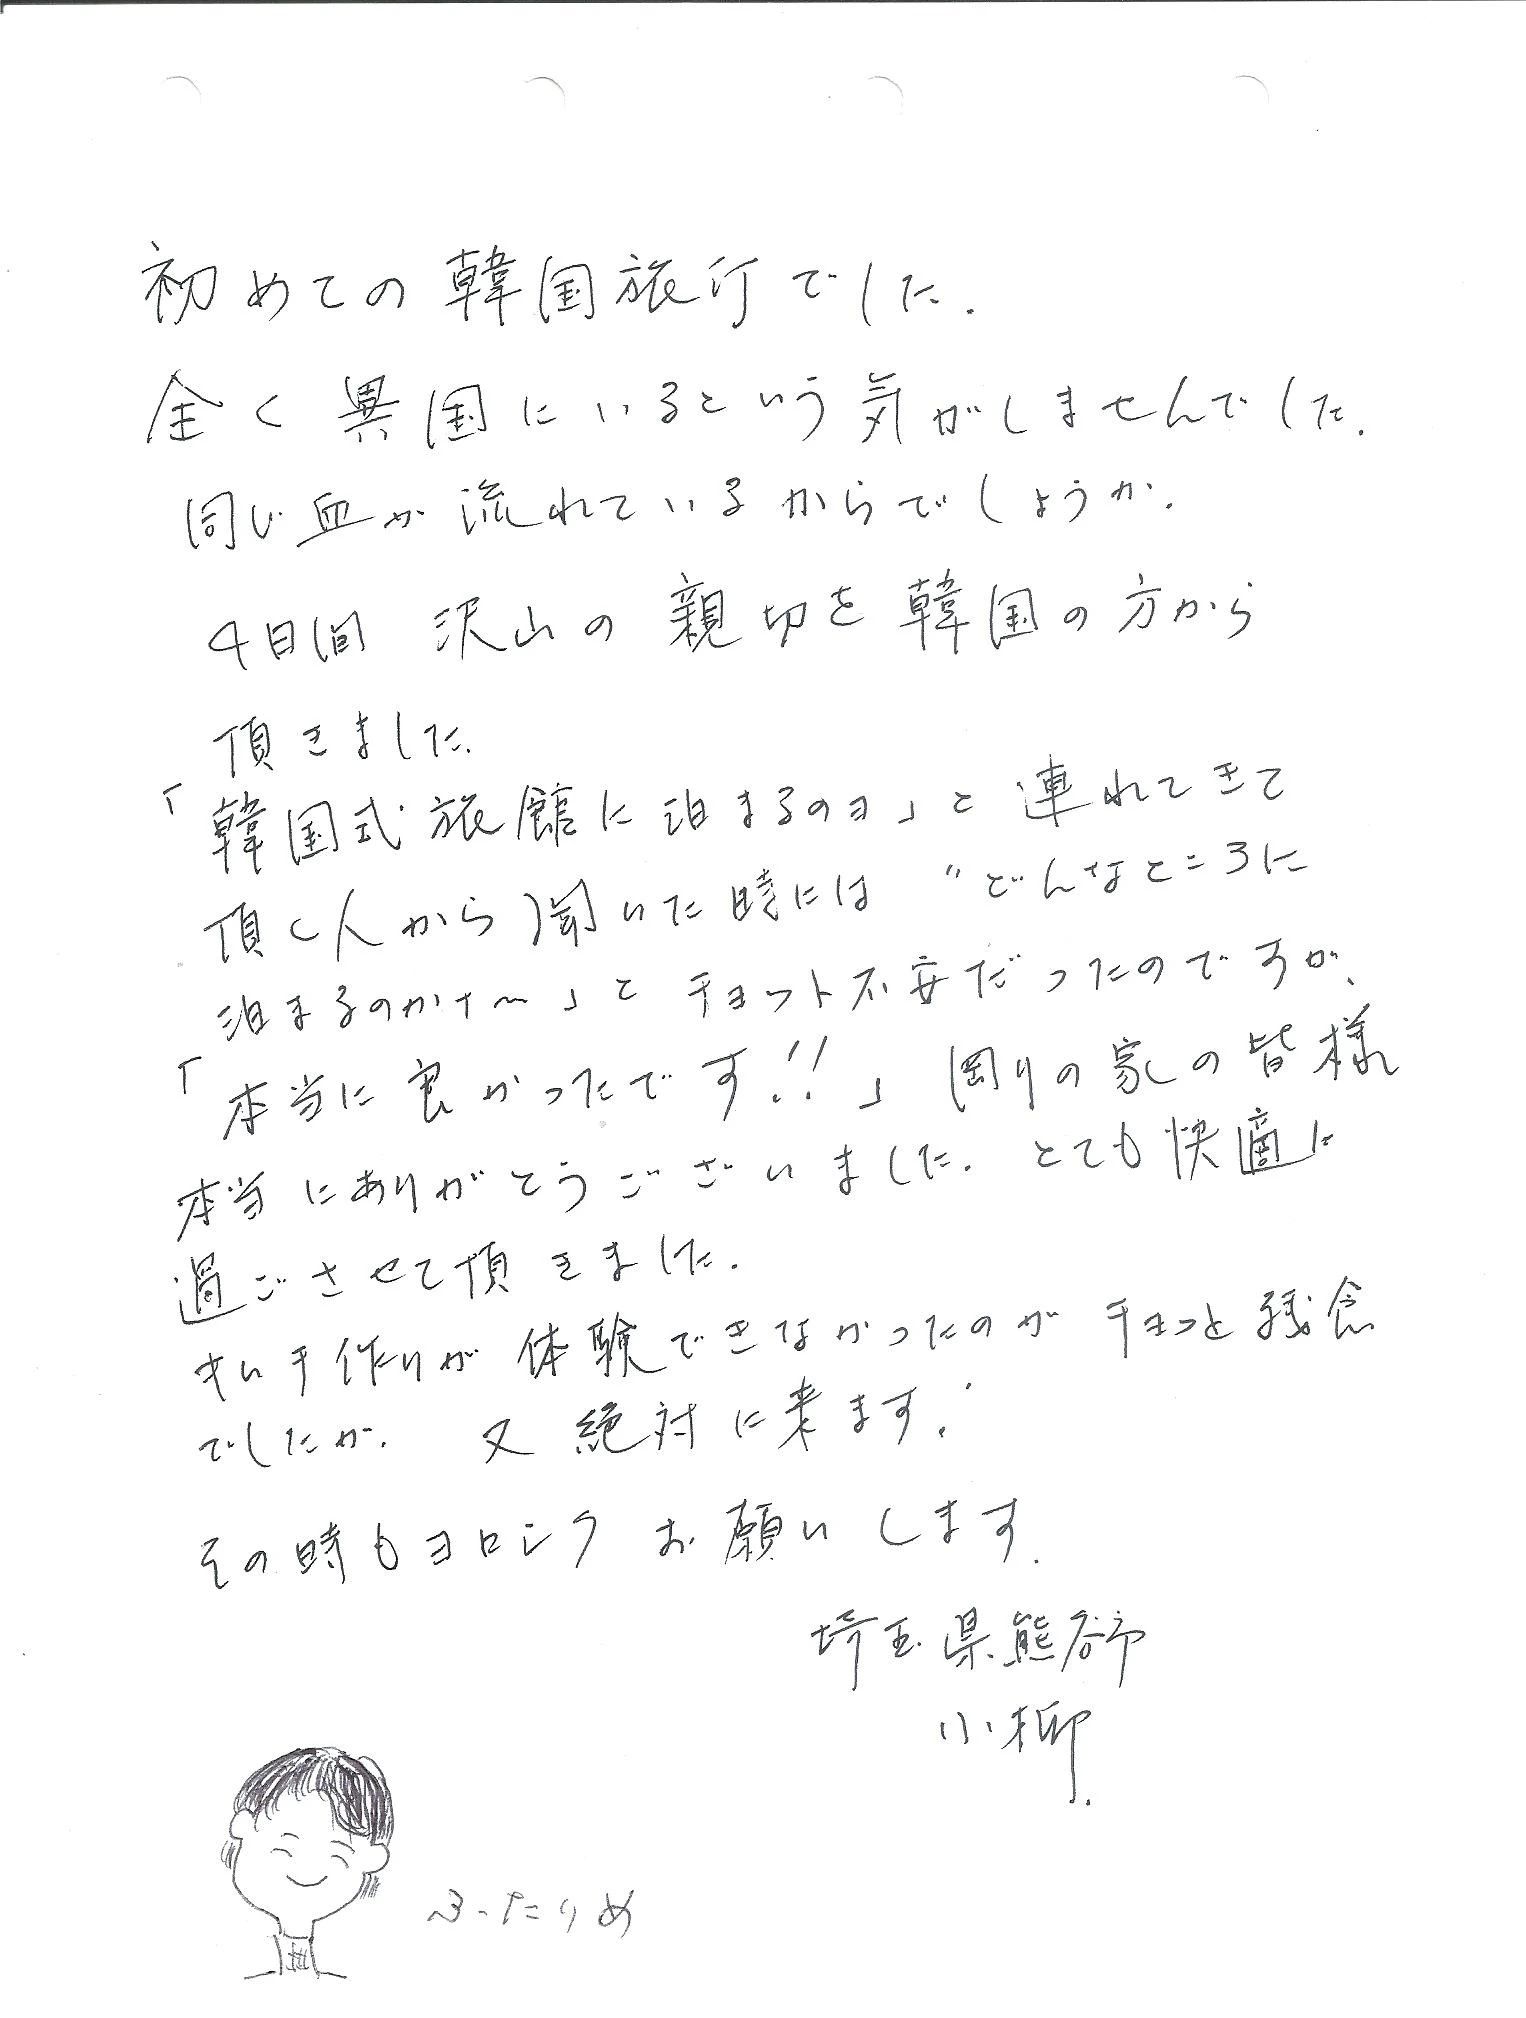 初めての韓国旅行でした.
全く異国にいるという気がしませんでした.
同じ血が流れているからでしょうか.
4日間 沢山の親切を韓国の方から
頂きました.
「韓国式旅館に泊まるのヨ」と連れてきて
頂く人から聞いた時には "どんなところに
泊まるのかナ〜」とチョット不安だったのですが、
「本当に良かったです!!」岡りの家の皆様
本当にありがとうございました. とても快適に
過ごさせて頂きました.
キムチ作りが体験できなかったのがチョっと残念
でしたが. 又 絶対に来ます.
その時もヨロシクお願いします.
埼玉県熊谷市
小柳.